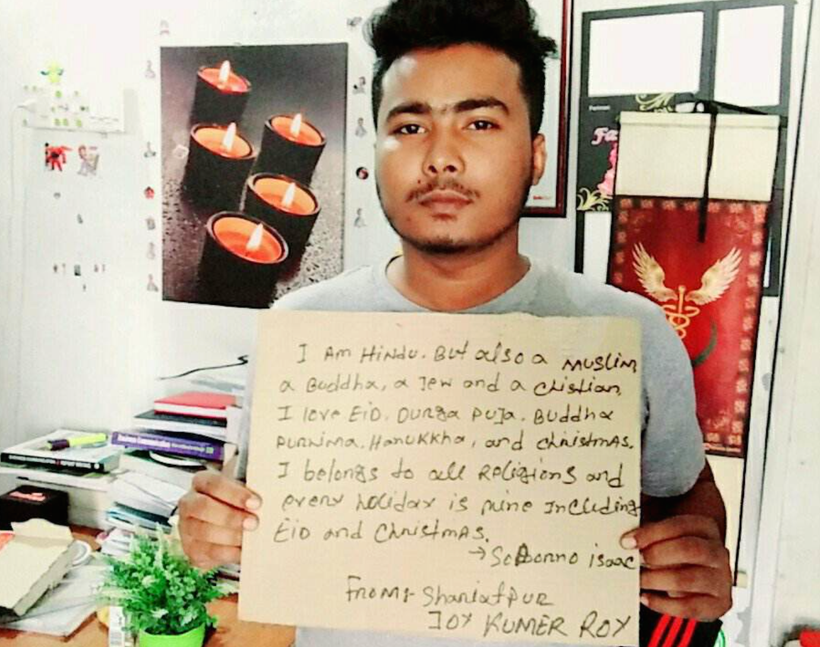 I Am Hindu. But also a muslim
a Buddha, a Jew and a christian,
I love Eid. Durga Puja. Buddha
Purnima. Hanukkha, and christmas.
I belongs to all Religions and
every holiday is mine Including
Eid and Christmas.
→ SoBorno isaac
From:- Shariatpur
Joy Kumer Roy